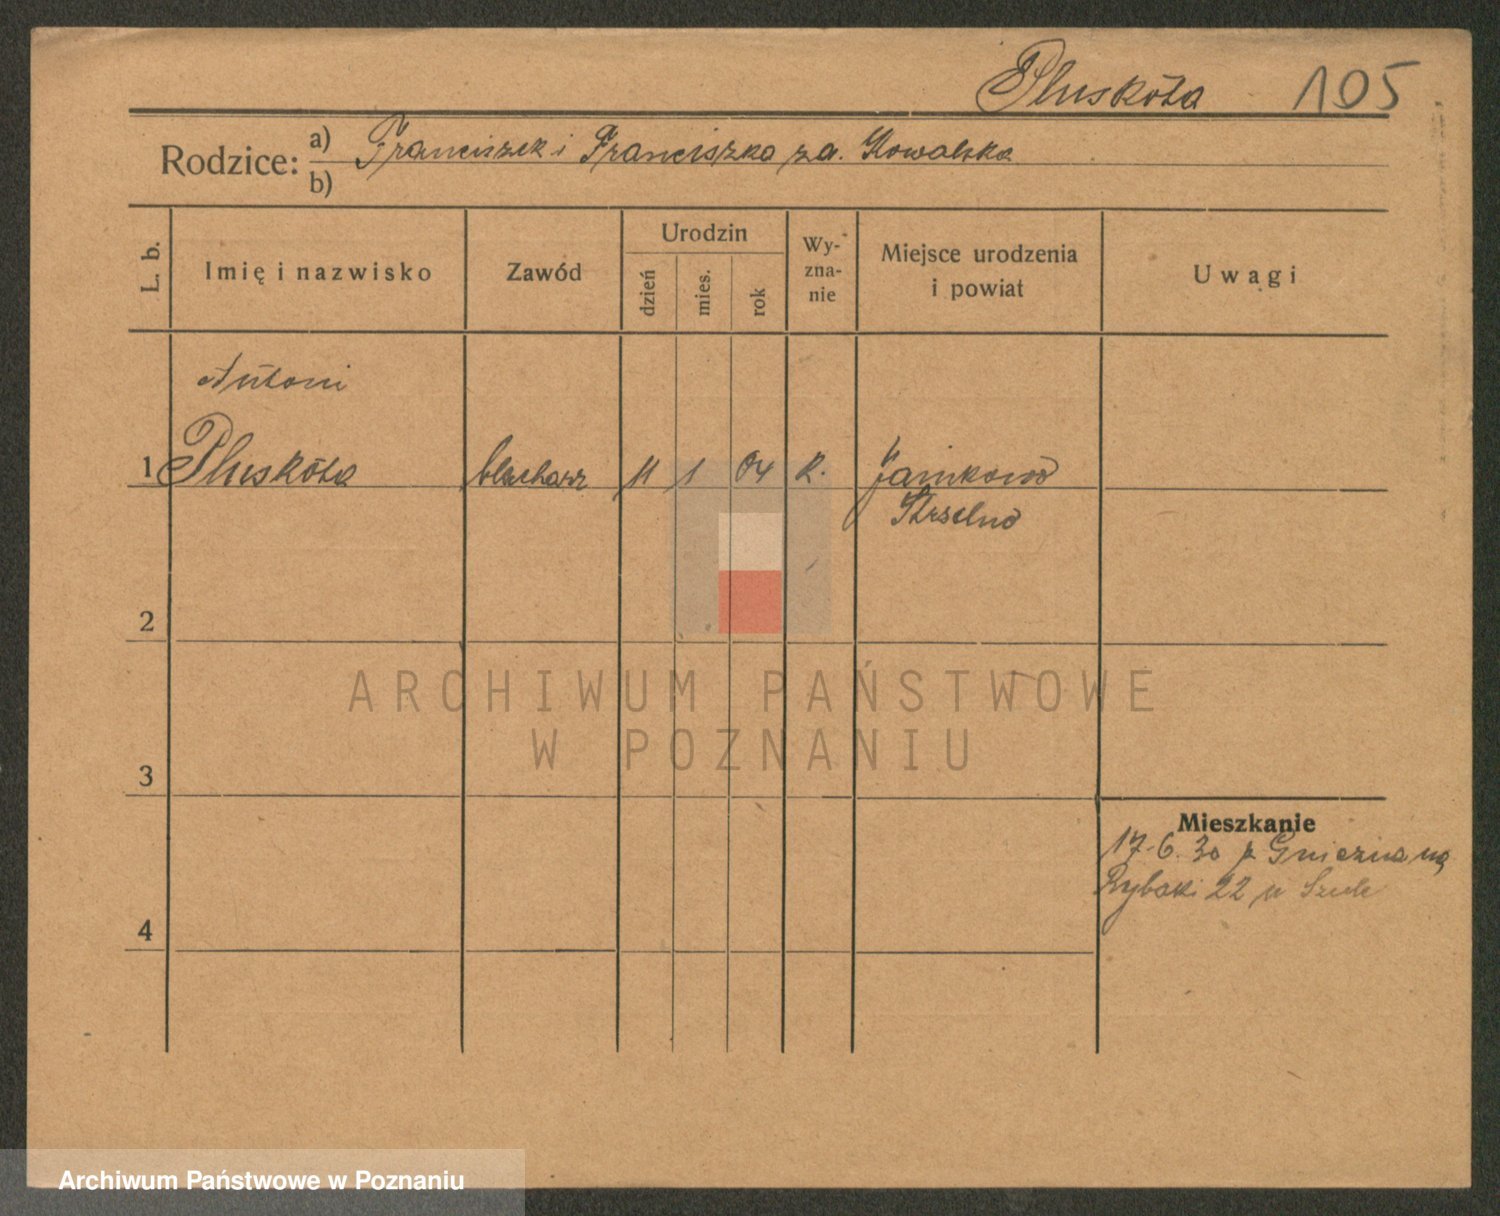 Pluskóta 105
Rodzice: a) Franciszek i Franciszka za. Kowalska
b)
L. b. Imię i nazwisko Zawód Urodzin dzień mies. rok Wy-zna-nie Miejsce urodzenia i powiat Uwagi
Antoni
1 Pluskóta blacharz 11 1 04 k. Jamkowo
Strzelno
2
ARCHIWUM PAŃSTWOWE
W POZNANIU
3
Mieszkanie
17.6.30 z Gniezna na
Rybaki 22 u
4
Archiwum Państwowe w Poznaniu